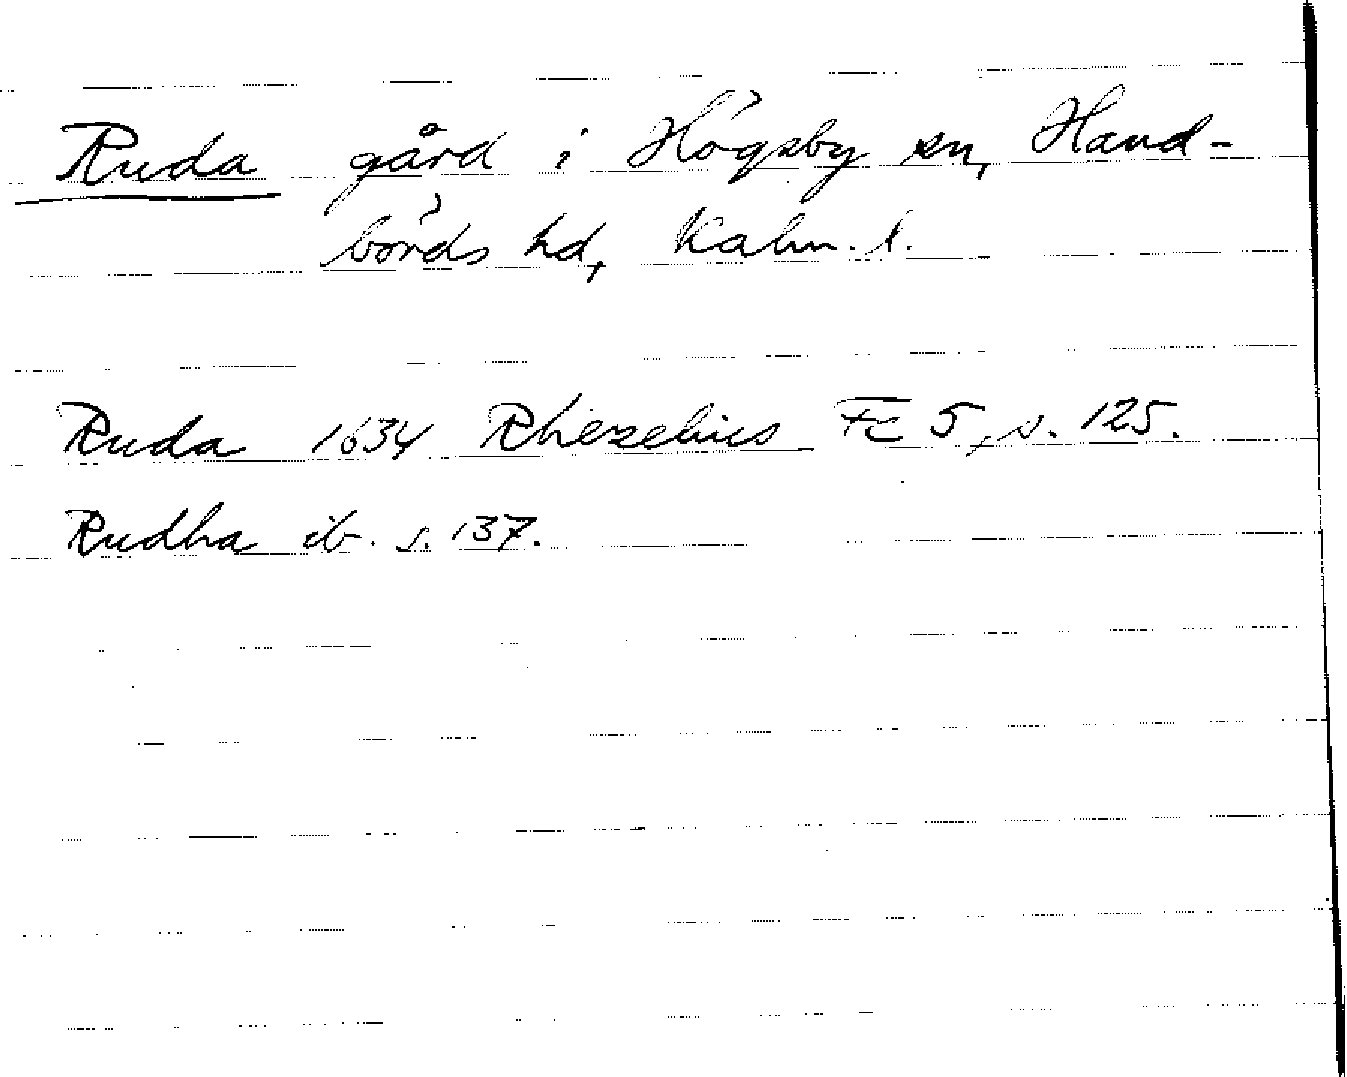 Ruda gård i Högsby sn, Hand-
börds hd, Kalm. l.
Ruda 1634 Rhezelius Fc 5, s. 125.
Rudha ib. s. 137.